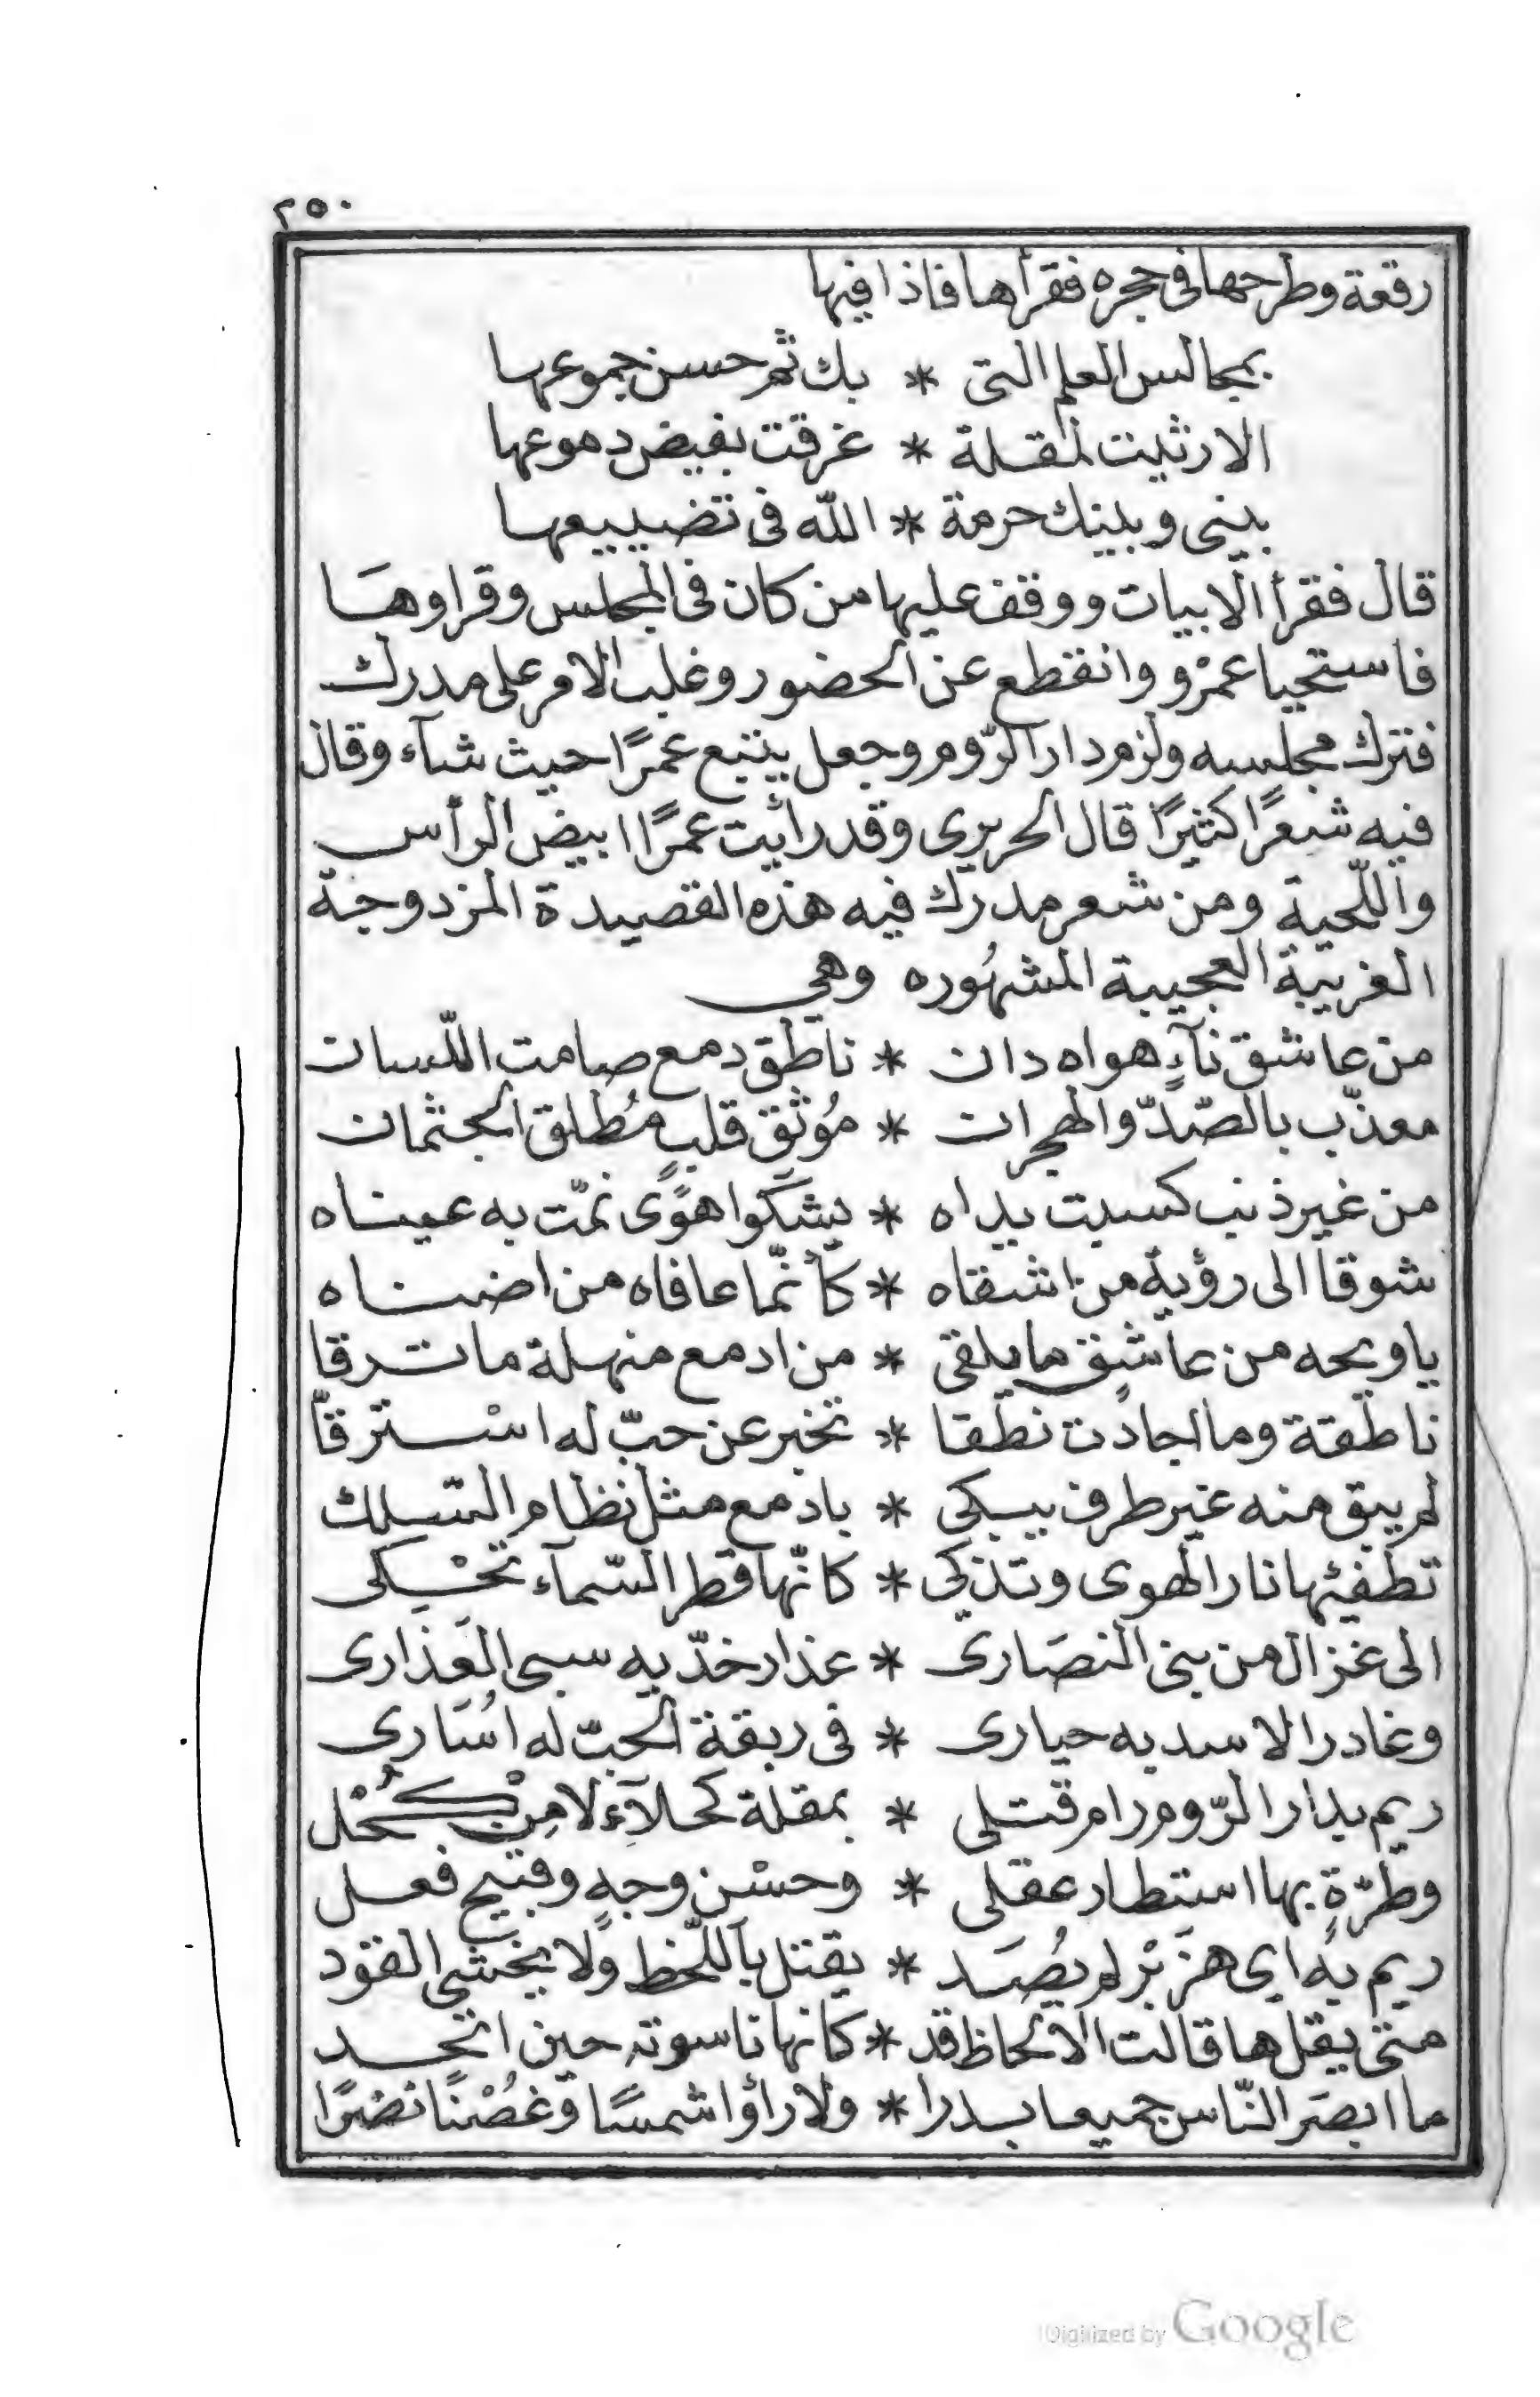 ٢٥٠
رقعة وطرحها فى حجره فقرأها فاذا فيها
بمجالس العلم التى * بك تم حسن جموعها
الا رثيت لمقلة * غرقت بفيض دموعها
بينى وبينك حرمة * الله فى تضييعها
قال فقرأ الابيات ووقف عليها من كان فى المجلس وقراوهَا
فاستحيا عمرْو وانقطع عن الحضور وغلب الامر على مدرك
فترك مجلسه ولزم دار الرّوم وجعل يتبع عمرًا حيث شآء وقال
فيه شعرًا كثيرًا قال الحريرى وقد رأيت عمرًا ابيض الرأس
واللّحية ومن شعر مدرك فيه هذه القصيدة المزدوجة
الغريبة العجيبة المشهُوره وهي
من عاشق نآءٍ هواه دان * ناطق دمع صامت اللّسان
معذّب بالصّدّ والهجران * مُوثق قلبٍ مُطلق الجثمان
من غير ذنب كسبت يداه * يشكوا هوًى نمّت به عيناه
شوقا الى رؤية من اشقاه * كأنّما عافاه من اضناه
يا ويحه من عاشقٍ ما يلقى * من ادمع منهلة ما ترقا
ناطقة وما اجادت نطقا * تخبر عن حبّ له اسْترقّا
لم يبق منه غير طرف يبكى * بادمع مثل نظام السّلك
تطفئها نار الهوى وتذكى * كانّها قطر السّمآء تحْكى
الى غزال من بنى النصَارى * عذار خدّيه سبى العَذارى
وغادر الاسد به حيارى * فى ربقة الحبّ له اسُارى
ريم بدار الرّوم رام قتلى * بمقلة كحلآءِ لا مِنْ كُحْل
وطرّةٍ بها استطار عقلى * وحسْن وجهٍ وقبيح فعل
ريم به اى هزَبْر لم يُصَد * يقتل باللّحظ ولا يخشى القود
متى يقل ها قالت الالحاظ قد * كانها ناسوته حين اتحد
ما ابصَر النّاس جميعا بدرا * ولا رأوا شمسًا وغصُنًا نضْرًا
Digitized by Google